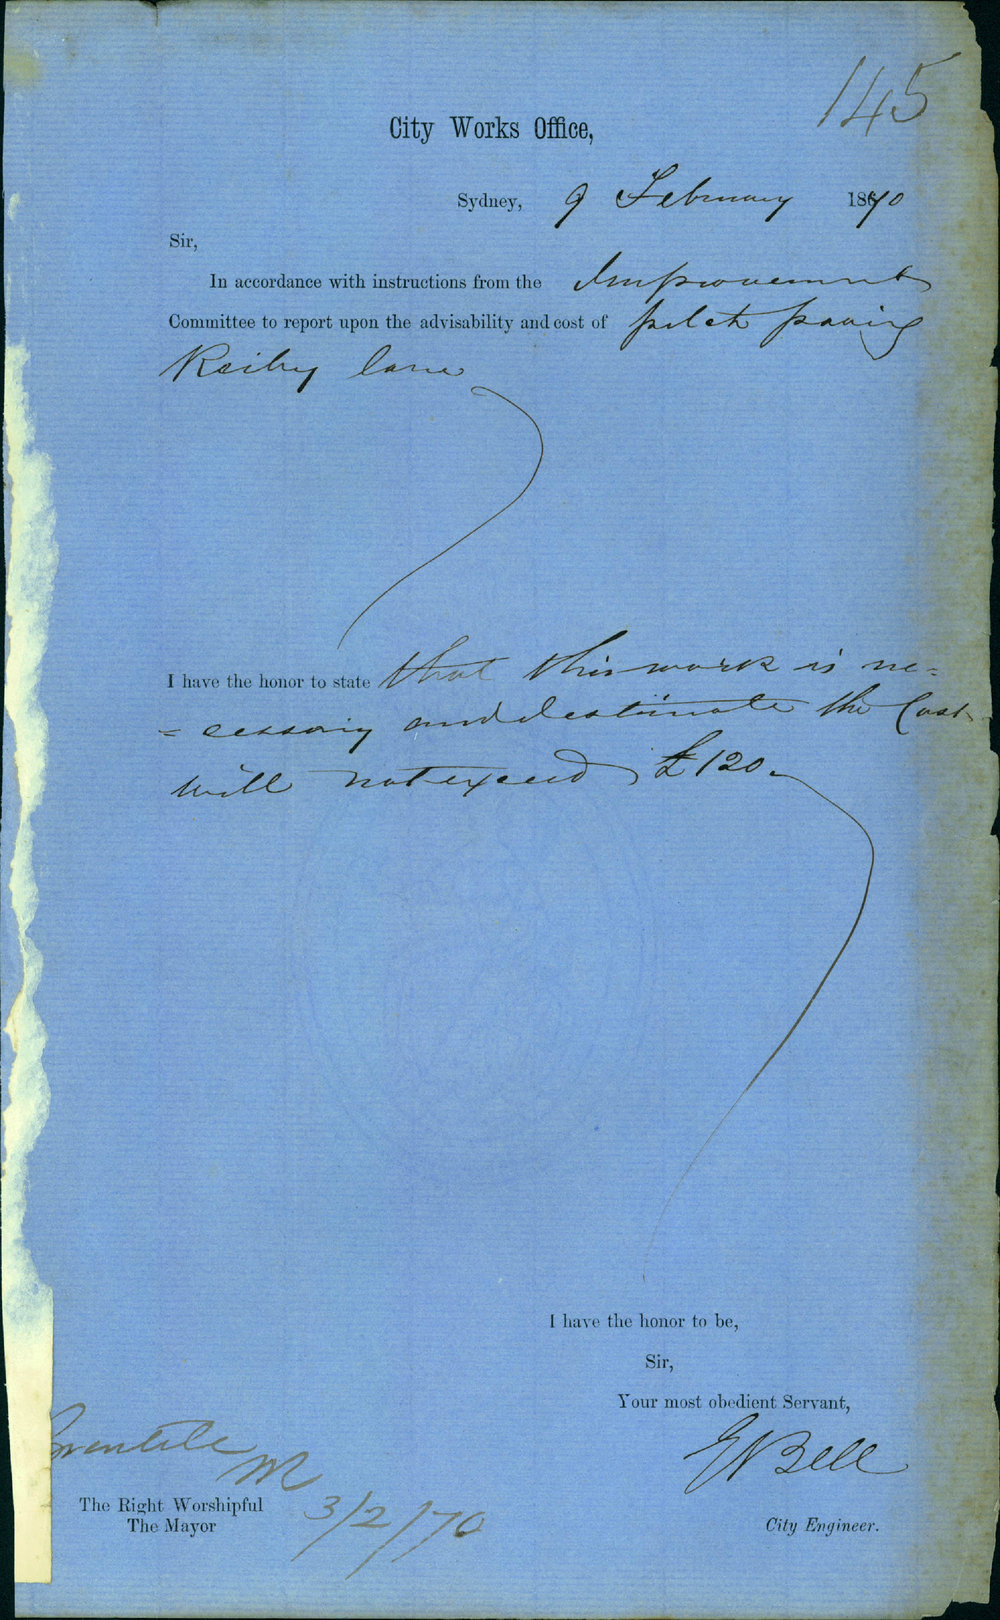 145
City Works Office,
Sydney, 9 February 1870
Sir,
In accordance with instructions from the Improvement
Committee to report upon the advisability and cost of pitch paving
Reiby lane
I have the honor to state that this work is ne=
=cessary and I estimate the Cost
will not exceed £120.
I have the honor to be,
Sir,
Your most obedient Servant,
E Bell
M
The Right Worshipful
The Mayor
3/2/70
City Engineer.